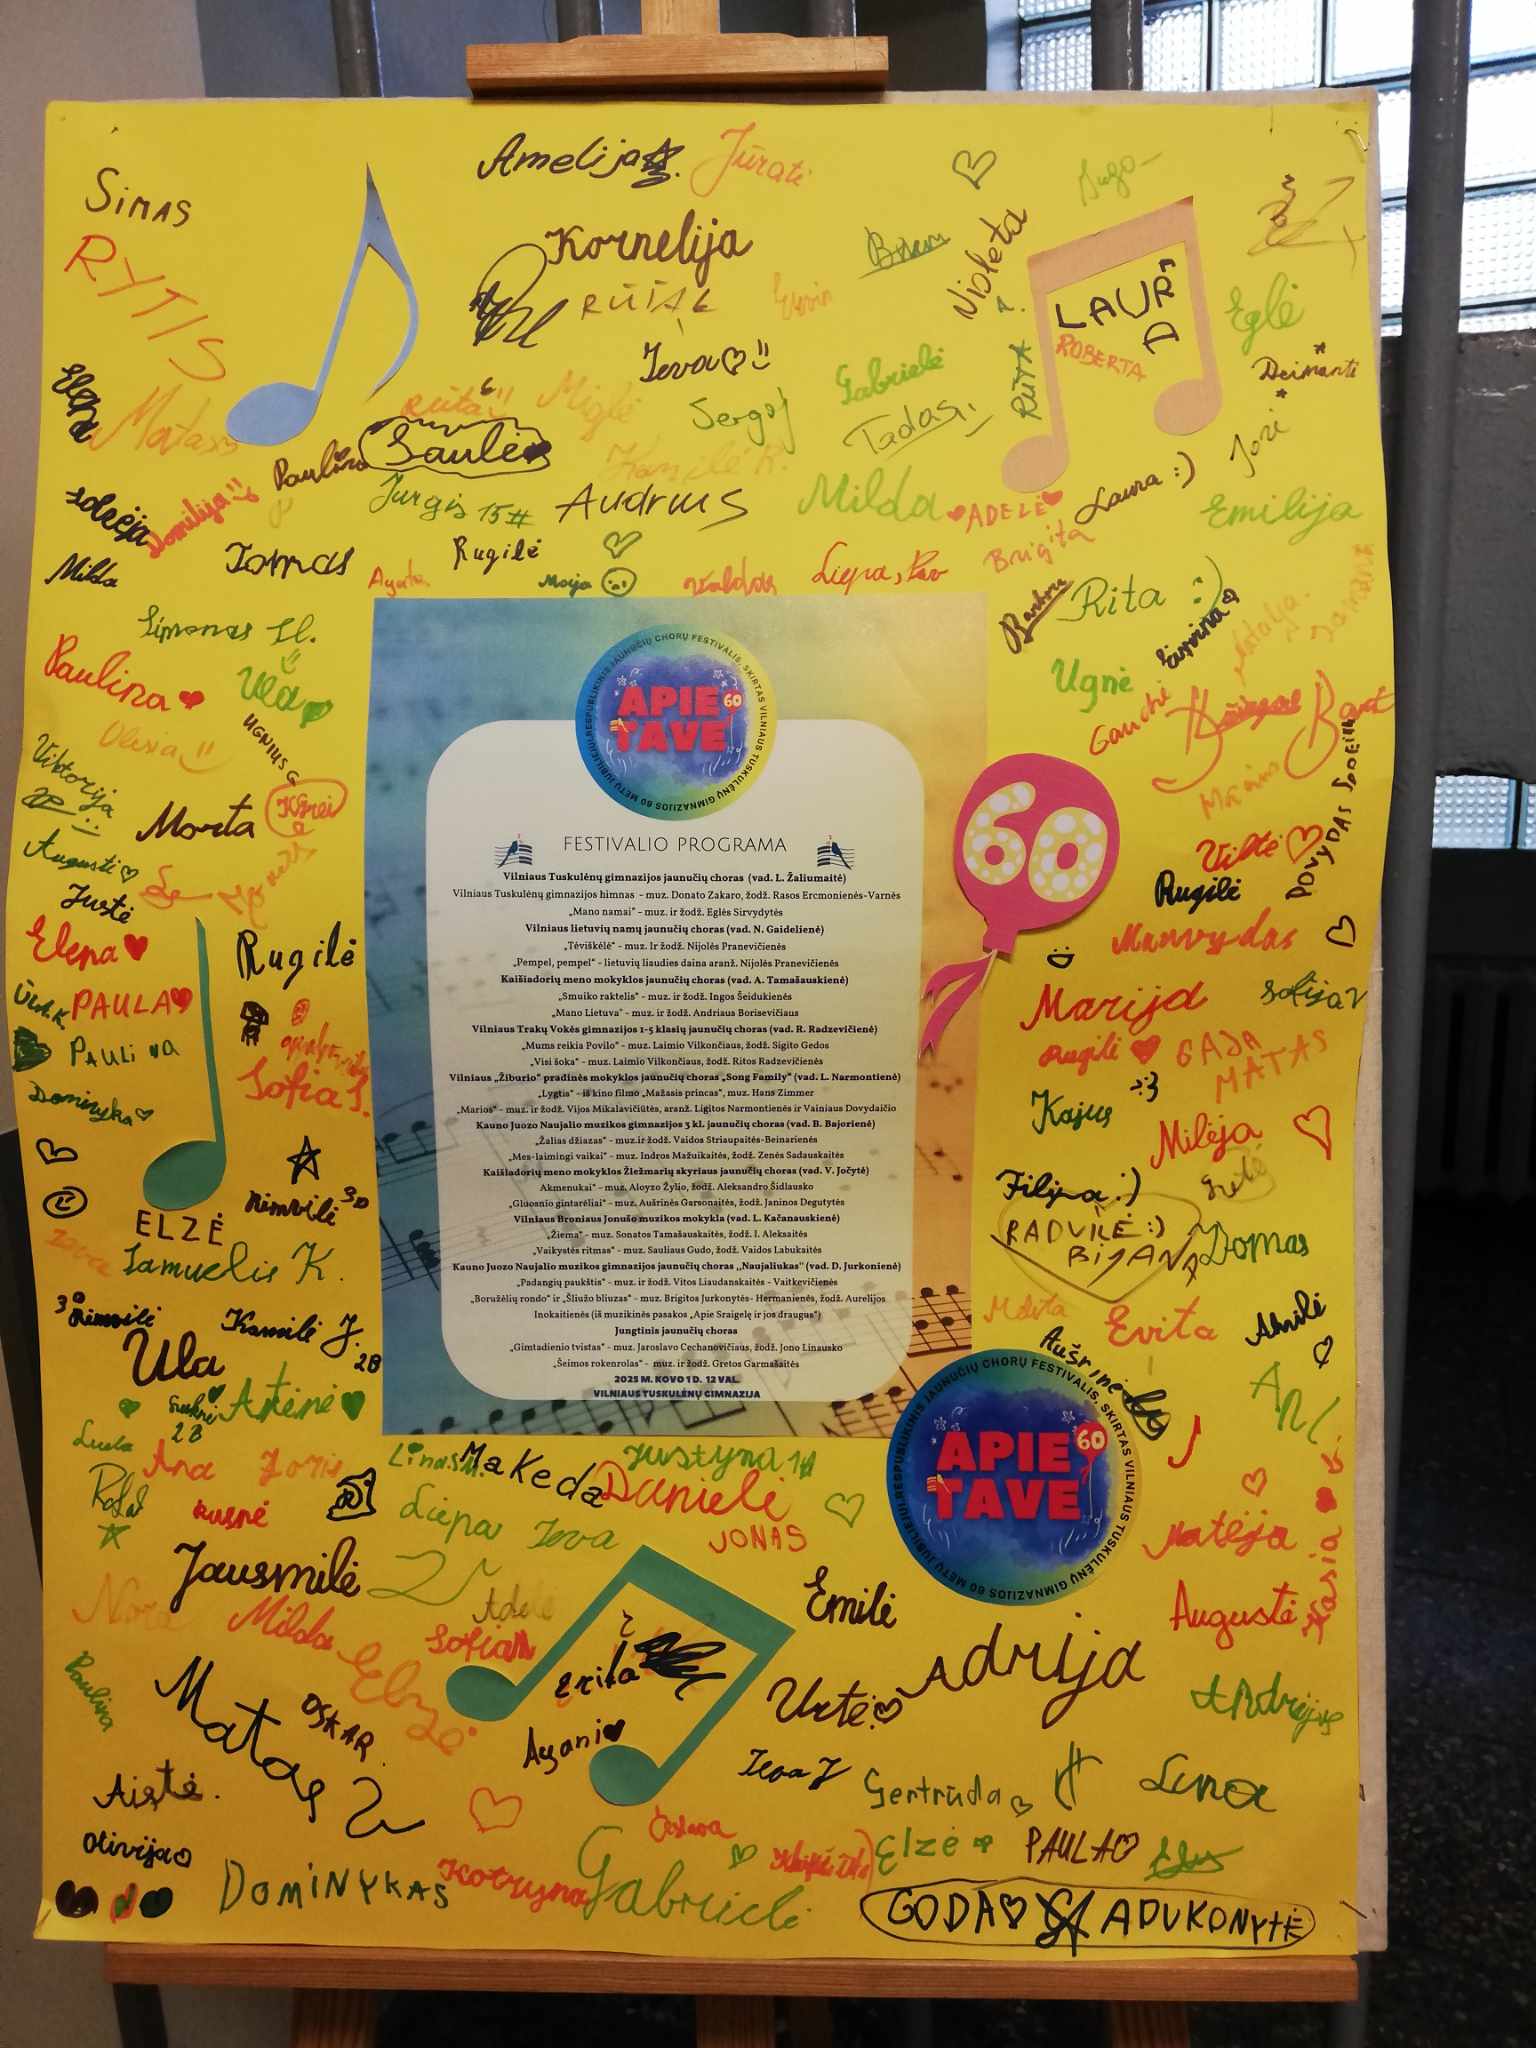 Amelija
Jūratė
SIMAS
RYTIS
Kornelija
Violeta
LAURA
ROBERTA
Eglė
Deimantė
RŪTA
Ieva
Gabrielė
Rūta
Miglė
Sergej
Tadas
Elena
Matas
Paulina
Saulė
Kamilė K.
Jurgis 15#
AUDRIUS
Milda
ADELĖ
Laura :)
Emilija
Domilija
Tomas
Rugilė
Brigita
Milda
Agota
Valdas
Liepa
Rita :)
Simonas
Paulina
Ula
Ugnė
Olivia
UGNIUS G
Viktorija
Morta
Viltė
DOVYDAS
Augustė
Justė
Rugilė
Elena
Rugilė
Manvydas
PAULA
Marija
Sofija
PAULINA
Rugilė
MATAS
Dominyka
Sofia S.
Kajus
Milėja
Rimvilė 3D
Filipa :)
Gretė
ELZĖ
RADVILĖ :)
BIJANA
Domas
Ieva
Samuelis K.
Evita
Kamilė J.
2B
Ula
Aušrinė
APIE
TAVE
60
RESPUBLIKINIS JAUNUČIŲ CHORŲ FESTIVALIS, SKIRTAS VILNIAUS TUSKULĖNŲ GIMNAZIJOS 60 METŲ JUBILIEJUI
60
FESTIVALIO PROGRAMA
Vilniaus Tuskulėnų gimnazijos jaunučių choras (vad. L. Žaliumaitė)
Vilniaus Tuskulėnų gimnazijos himnas - muz. Donato Zakaro, žodž. Rasos Ercmonienės-Varnės
„Mano namai" - muz. ir žodž. Eglės Sirvydytės
Vilniaus lietuvių namų jaunučių choras (vad. N. Gaidelienė)
„Tėviškėlė" - muz. Ir žodž. Nijolės Pranevičienės
„Pempel, pempel" - lietuvių liaudies daina aranž. Nijolės Pranevičienės
Kaišiadorių meno mokyklos jaunučių choras (vad. A. Tamašauskienė)
„Smuiko raktelis" - muz. ir žodž. Ingos Šeidukienės
„Mano Lietuva" - muz. ir žodž. Andriaus Borisevičiaus
Vilniaus Trakų Vokės gimnazijos 1-5 klasių jaunučių choras (vad. R. Radzevičienė)
„Mums reikia Povilo" - muz. Laimio Vilkončiaus, žodž. Sigito Gedos
„Visi šoka" - muz. Laimio Vilkončiaus, žodž. Ritos Radzevičienės
Vilniaus „Žiburio" pradinės mokyklos jaunučių choras „Song Family" (vad. L. Narmontienė)
„Lygtis" - iš kino filmo „Mažasis princas", muz. Hans Zimmer
„Marios" - muz. ir žodž. Vijos Mikalavičiūtės, aranž. Ligitos Narmontienės ir Vainiaus Dovydaičio
Kauno Juozo Naujalio muzikos gimnazijos 3 kl. jaunučių choras (vad. B. Bajorienė)
„Žalias džiazas" - muz.ir žodž. Vaidos Striaupaitės-Beinarienės
„Mes-laimingi vaikai" - muz. Indros Mažuikaitės, žodž. Zenės Sadauskaitės
Kaišiadorių meno mokyklos Žiežmarių skyriaus jaunučių choras (vad. V. Jočytė)
Akmenukai" - muz. Aloyzo Žylio, žodž. Aleksandro Šidlausko
„Gluosnio gintarėliai" - muz. Aušrinės Garsonaitės, žodž. Janinos Degutytės
Vilniaus Broniaus Jonušo muzikos mokykla (vad. L. Kačanauskienė)
„Žiema" - muz. Sonatos Tamašauskaitės, žodž. I. Aleksaitės
„Vaikystės ritmas" - muz. Sauliaus Gudo, žodž. Vaidos Labukaitės
Kauno Juozo Naujalio muzikos gimnazijos jaunučių choras ,,Naujaliukas" (vad. D. Jurkonienė)
„Padangių paukštis" - muz. ir žodž. Vitos Liaudanskaitės - Vaitkevičienės
„Boružėlių rondo" ir „Šliužo bliuzas" - muz. Brigitos Jurkonytės- Hermanienės, žodž. Aurelijos
Inokaitienės (iš muzikinės pasakos „Apie Sraigelę ir jos draugus")
Jungtinis jaunučių choras
„Gimtadienio tvistas" - muz. Jaroslavo Cechanovičiaus, žodž. Jono Linausko
„Šeimos rokenrolas" - muz. ir žodž. Gretos Garmašaitės
2025 M. KOVO 1 D. 12 VAL.
VILNIAUS TUSKULĖNŲ GIMNAZIJA
RESPUBLIKINIS JAUNUČIŲ CHORŲ FESTIVALIS, SKIRTAS VILNIAUS TUSKULĖNŲ GIMNAZIJOS 60 METŲ JUBILIEJUI
APIE
TAVE
60
Makeda
Justyna
Ana
Joris
Danielė
Rusnė
Liepa
Ieva
JONAS
Matėja
Jausmilė
Adelė
Emilė
Augustė
Kasia
Nora
Milda
Sofia
Adrija
Paulina
Elzė
Erika
Urtė
Andrijus
Matas
OSKAR
Ieva J
Gertrūda
Lina
Aistė.
Olivija
Elzė
PAULA
DOMINYKAS
Kotryna
Gabrielė
GODA
ADUKONYTĖ